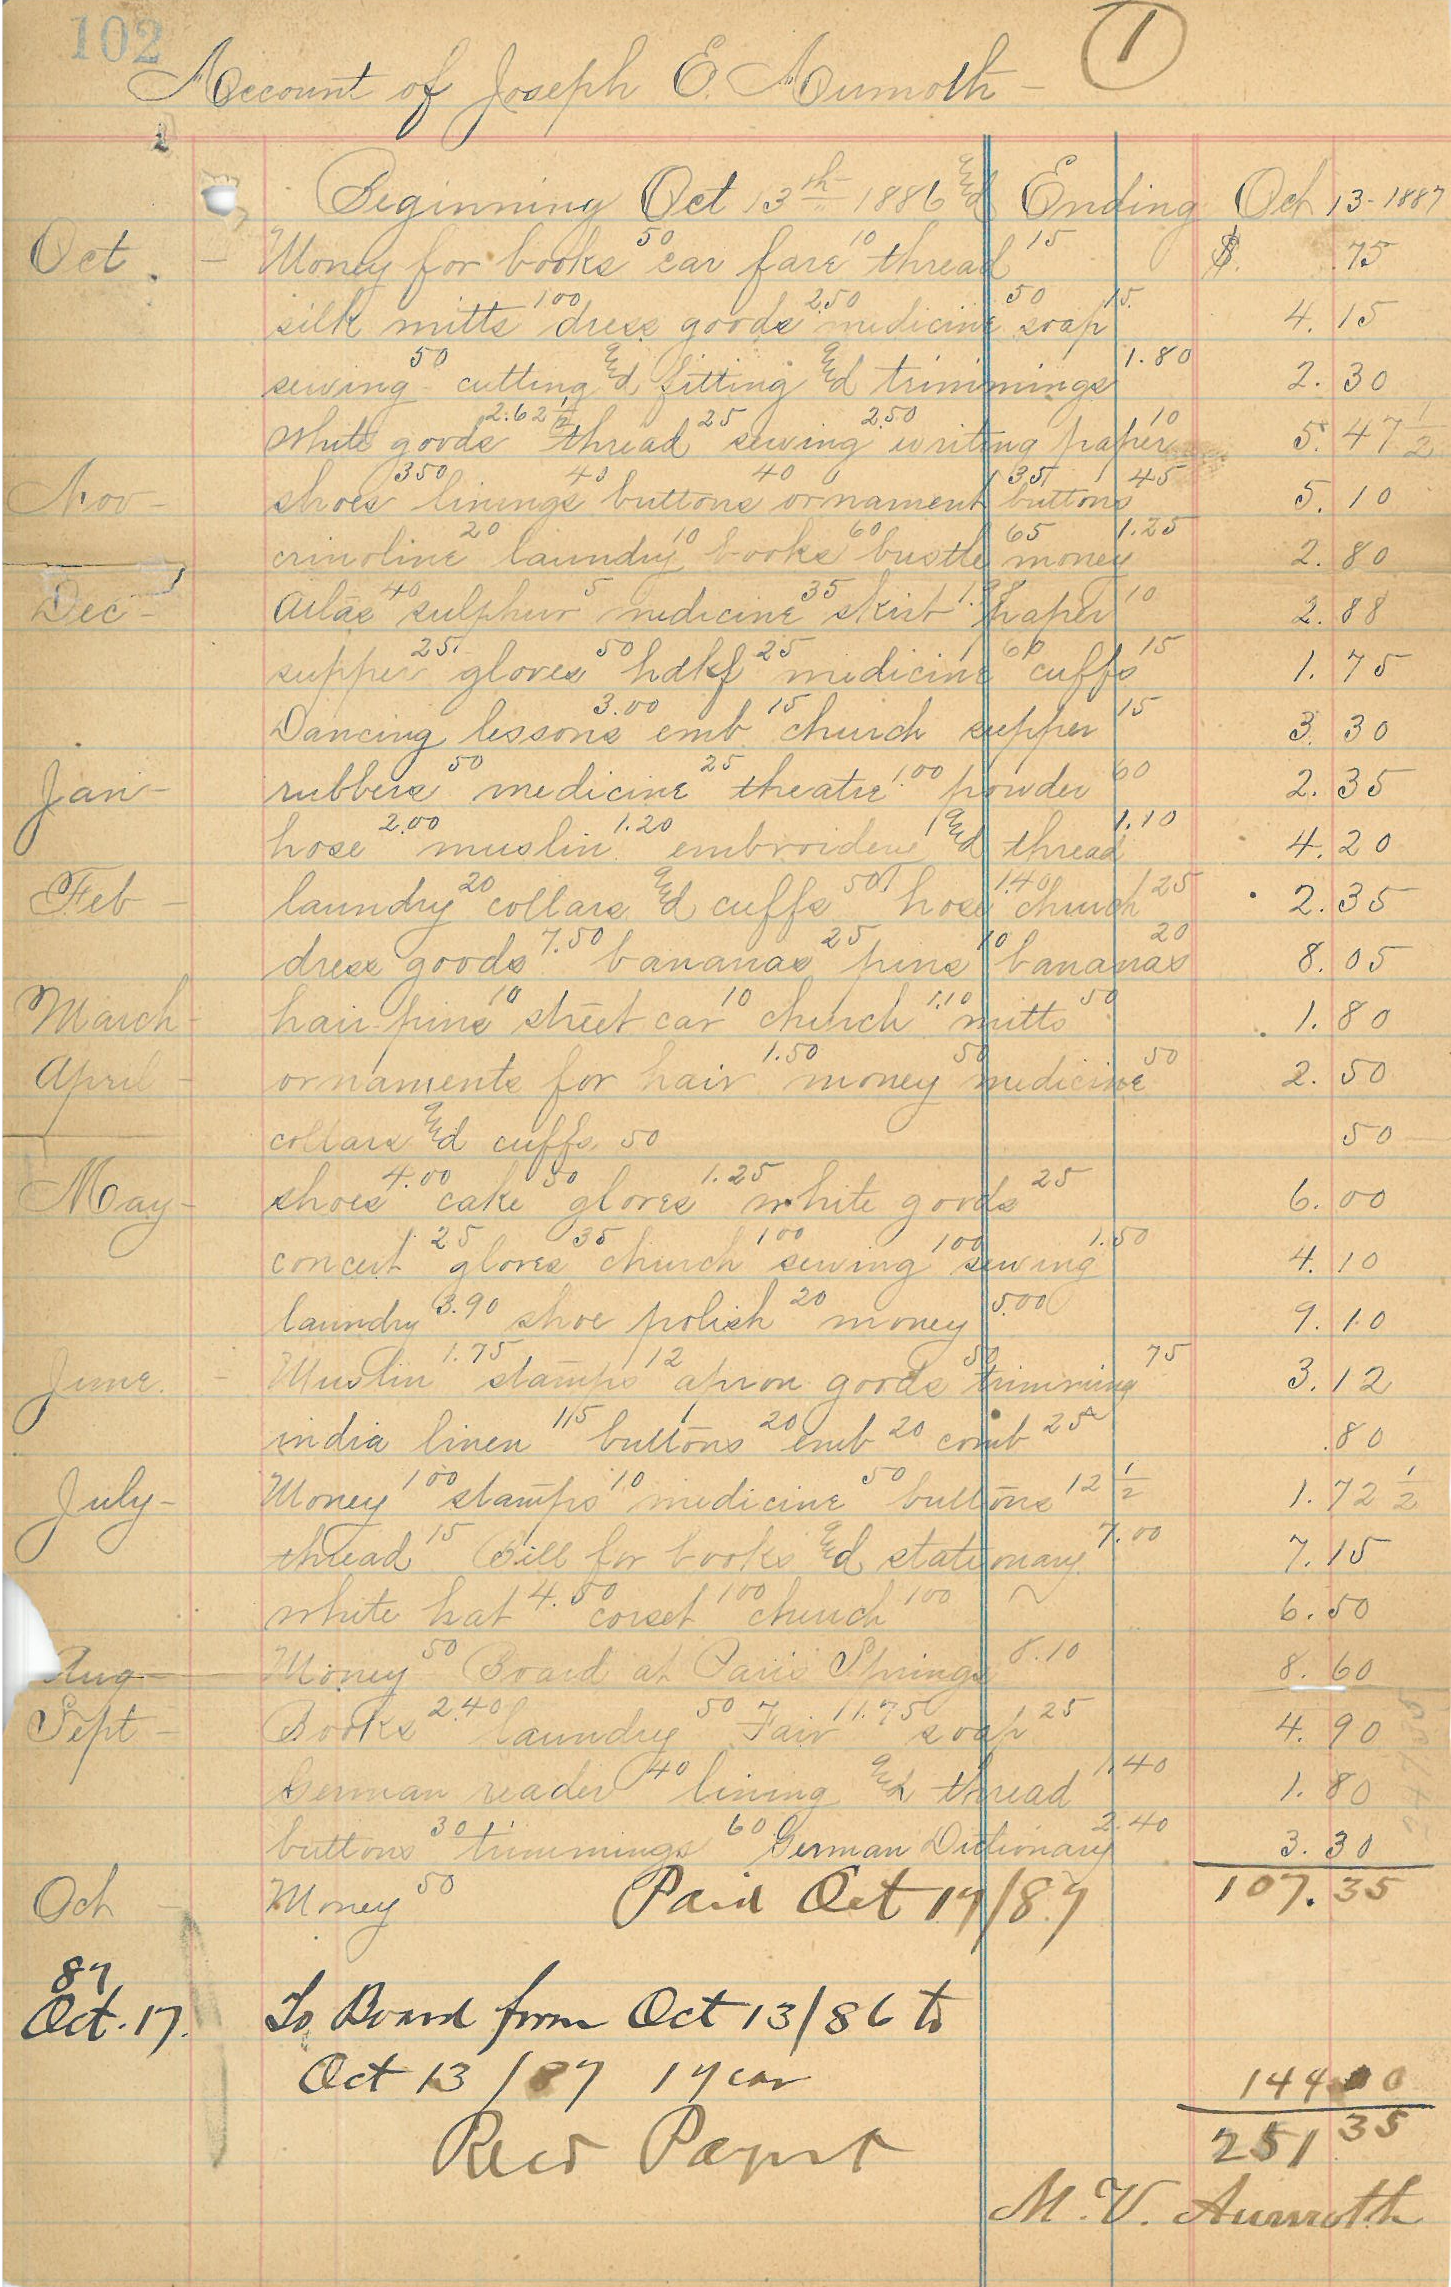 102
1
Account of Joseph E. Aumoth
Beginning Oct 13th 1886 and Ending Oct 13-1887
Oct. - Money for books 50 car fare 10 thread 15 $ .75
silk mitts 100 dress goods 2.50 medicine 50 soap 15 4.15
sewing 50 cutting and fitting and trimmings 1.80 2.30
white goods 2.62 1/2 thread 25 sewing 2.50 writing paper 10 5.47 1/2
Nov - shoes 350 linings 40 buttons 40 ornament 35 buttons 45 5.10
crinoline 20 laundry 10 books 60 bustle 65 money 1.25 2.80
Dec - Atlas 40 sulphur 5 medicine 35 skirt paper 10 2.88
supper 25 gloves 50 hdkf 25 medicine 60 cuffs 15 1.75
Dancing lessons 3.00 emb 15 church supper 15 3.30
Jan - rubbers 50 medicine 25 theatre 1.00 powder 60 2.35
hose 2.00 muslin 1.20 embroiderie and thread 1.10 4.20
Feb - laundry 20 collars and cuffs 50 hose 1.40 church 25 2.35
dress goods 7.50 bananas 25 pins 10 bananas 20 8.05
March - hair pins 10 street car 10 church 1.10 mitts 50 1.80
April - ornaments for hair 1.50 money 50 medicine 50 2.50
collars and cuffs 50 50
May - shoes 4.00 cake 50 gloves 1.25 white goods 25 6.00
concert 25 gloves 35 church 100 sewing 100 sewing 1.50 4.10
laundry 3.90 shoe polish 20 money 5.00 9.10
June. - Muslin 1.75 stamps 12 apron goods 50 trimming 75 3.12
india linen 15 buttons 20 emb 20 comb 25 .80
July - Money 100 stamps 10 medicine 50 buttons 12 1/2 1.72 1/2
thread 15 Bill for books and stationary 7.00 7.15
white hat 4.50 corset 100 church 100 6.50
Aug - Money 50 Board at Paris Springs 8.10 8.60
Sept - Books 2.40 laundry 50 Fair 1.75 soap 25 4.90
German reader 40 lining and thread 1.40 1.80
buttons 30 trimmings 60 German Dictionary 2.40 3.30
Oct - Money 50 Paid Oct 17/87 107.35
87
Oct. 17. To Board from Oct 13/86 to
Oct 13/87 1 year 144 00
251 35
Recd Paymt
M. V. Aumoth